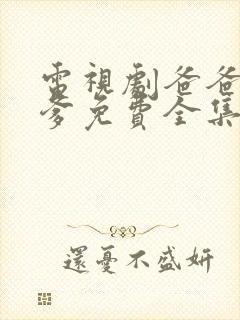 電視劇爸爸
爹免費全集
還憂不盛妍